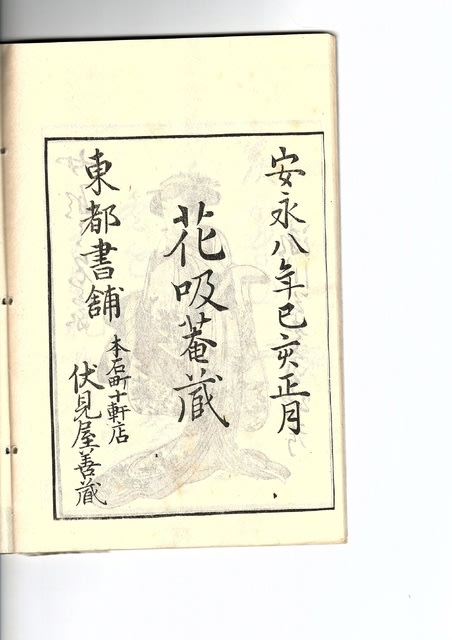 安永八年己亥正月
花吸菴蔵
東都書舗
本石町十軒店
伏見屋善蔵